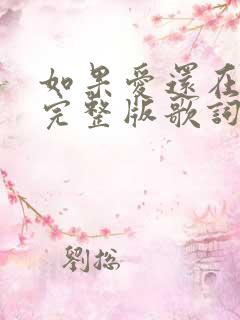 如果愛還在
完整版歌詞
劉總